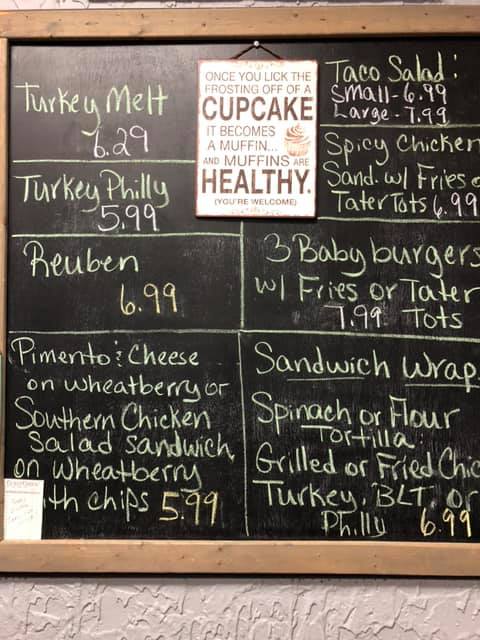 Turkey Melt
6.29
Turkey Philly
5.99
Reuben
6.99
Pimento & Cheese
on wheatberry or
Southern Chicken
Salad sandwich
on wheatberry
th chips 5.99
ONCE YOU LICK THE
FROSTING OFF OF A
CUPCAKE
IT BECOMES
A MUFFIN...
AND MUFFINS ARE
HEALTHY.
(YOU'RE WELCOME)
Taco Salad:
Small-6.99
Large-7.99
Spicy Chicken
Sand. w/ Fries o
Tater Tots 6.99
3 Baby burgers
w/ Fries or Tater
7.99 Tots
Sandwich Wrap
Spinach or Flour
Tortilla
Grilled or Fried Chic
Turkey, BLT, or
Philly 6.99